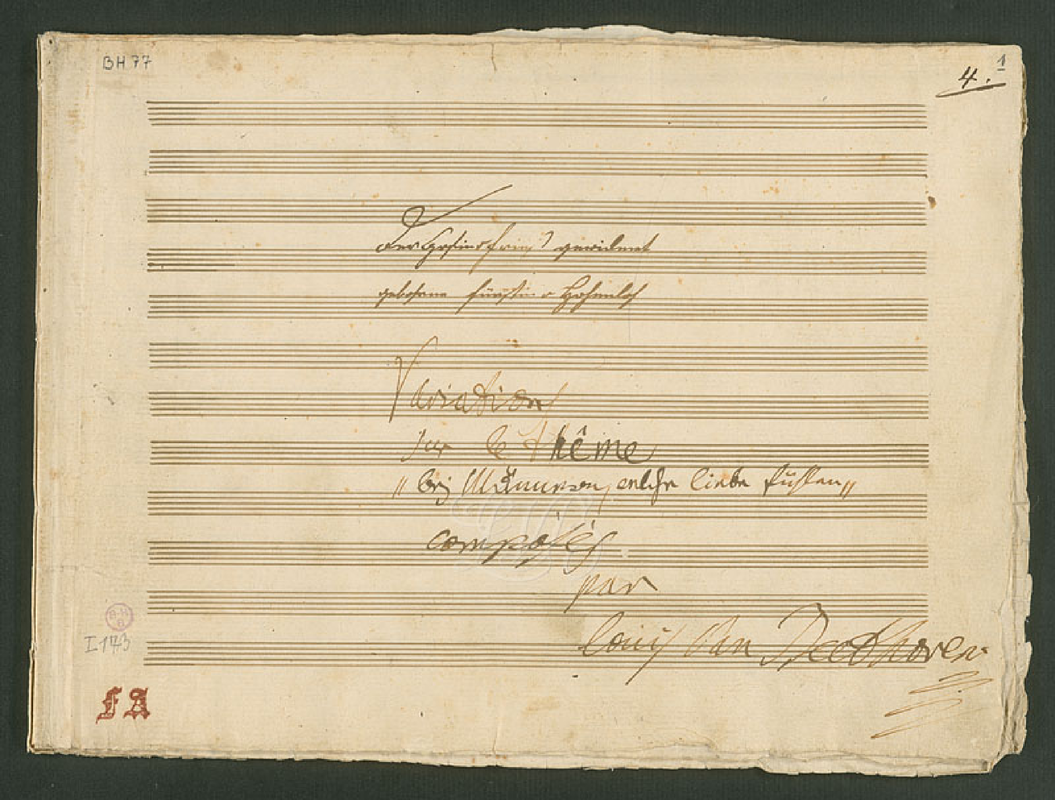 BH 77
4.
1
Der Gräfin Fries gewidmet
gebohrne fürstin Hohenloh
Variations
sur le thême
„bej Männern, welche liebe fühlen„
composés
par
louis van Beethoven
I 143
FA